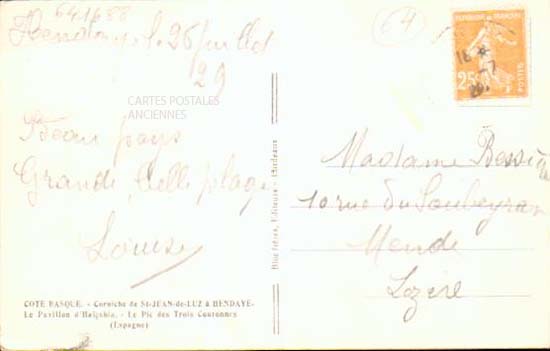 641688
Hendaye le 26 juillet
29
4
REPUBLIQUE FRANÇAISE
25c
POSTES
CARTES POSTALES
ANCIENNES
Beau pays
Grande, belle plage
Louise
Madame Bessière
10 rue du Soubeyran
Mende
Lozère
Blue frères, Editeurs - Bordeaux
COTE BASQUE. - Corniche de St-JEAN-de-LUZ à HENDAYE.
Le Pavillon d'Haiçabia. - Le Pic des Trois Couronnes
(Espagne)